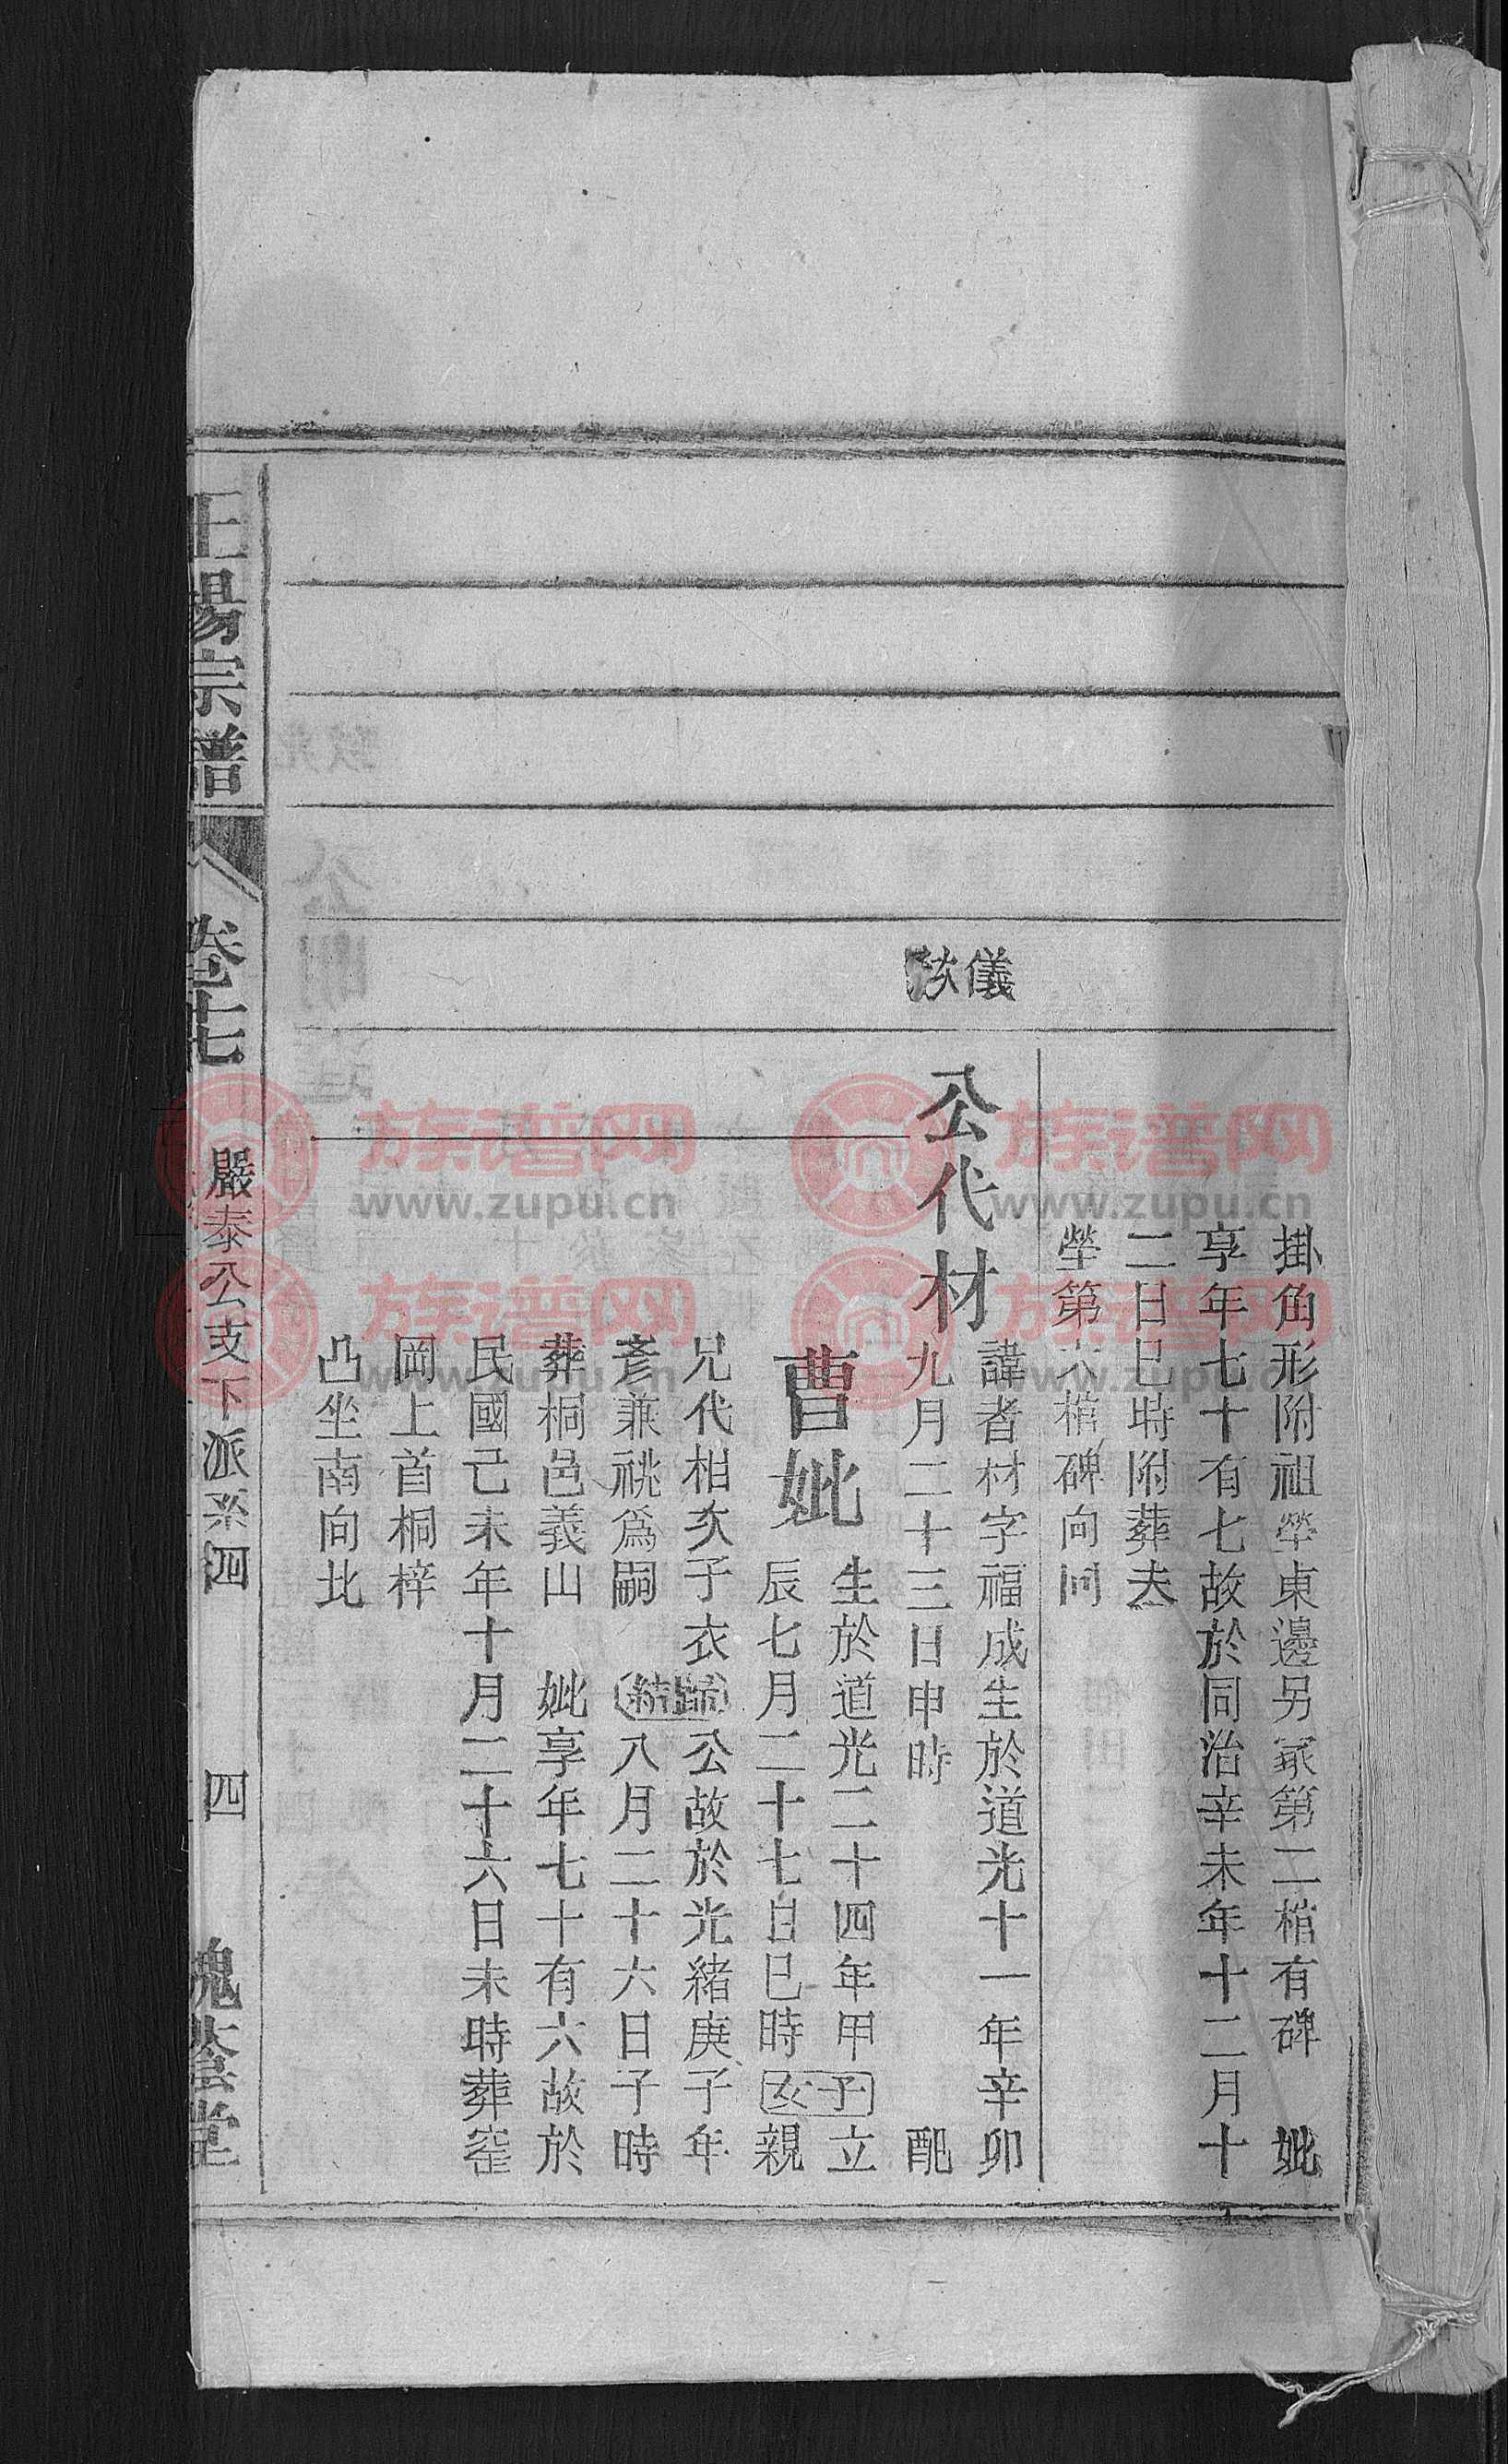 掛角形附祖塋東邊另冢第二棺有碑 妣
享年七十有七故於同治辛未年十二月十
二日巳時附葬夫
塋第六棺碑向同
儀
公代材
諱者材字福成生於道光十一年辛卯
九月二十三日申時 配
曹妣
生於道光二十四年甲立
辰七月二十七日巳時 親
子女
兄代相次子衣 歸 公故於光緒庚子年
彥兼祧爲嗣 結 八月二十六日子時
葬桐邑義山 妣享年七十有六故於
民國己未年十月二十六日未時葬窑
岡上首桐梓
凸坐南向北
王楊宗譜
卷七
嚴泰公支下派系四 四
槐蔭堂
族谱网
www.zupu.cn
族谱网
www.zupu.cn
族谱网
www.zupu.cn
族谱网
www.zupu.cn